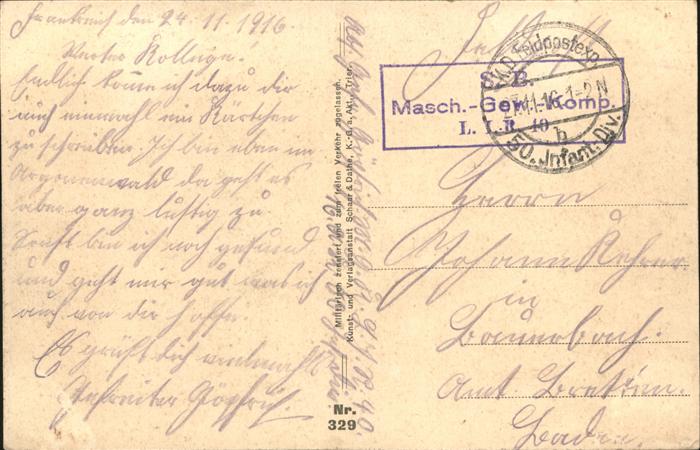 Frankreich den 24.11.1916.
Werter Kollege.
Endlich komme ich dazu dir
auch einmahl ein Kärtchen
zu schreiben. Ich bin eben im
Argonnenwald da geht es
aber ganz lustig zu
Sonst bin ich noch gesund
und geht mir gut was ich
auch von dir hoffe.
Es grüßt dich vielmahls
Gefreiter
Militärisch zensiert und zum freien Verkehr zugelassen.
Kunst- und Verlagsanstalt Schaar & Dathe, K.-G. a. Akt., Trier.
Nr.
329
K.D. Feldpostexp.
1-2N
b
50. Infant. Div.
S. B.
Masch.-Gew.-Komp.
L. I.-R.
Herrn
Johann
in
Bauerbach.
Amt Bretten.
Baden.